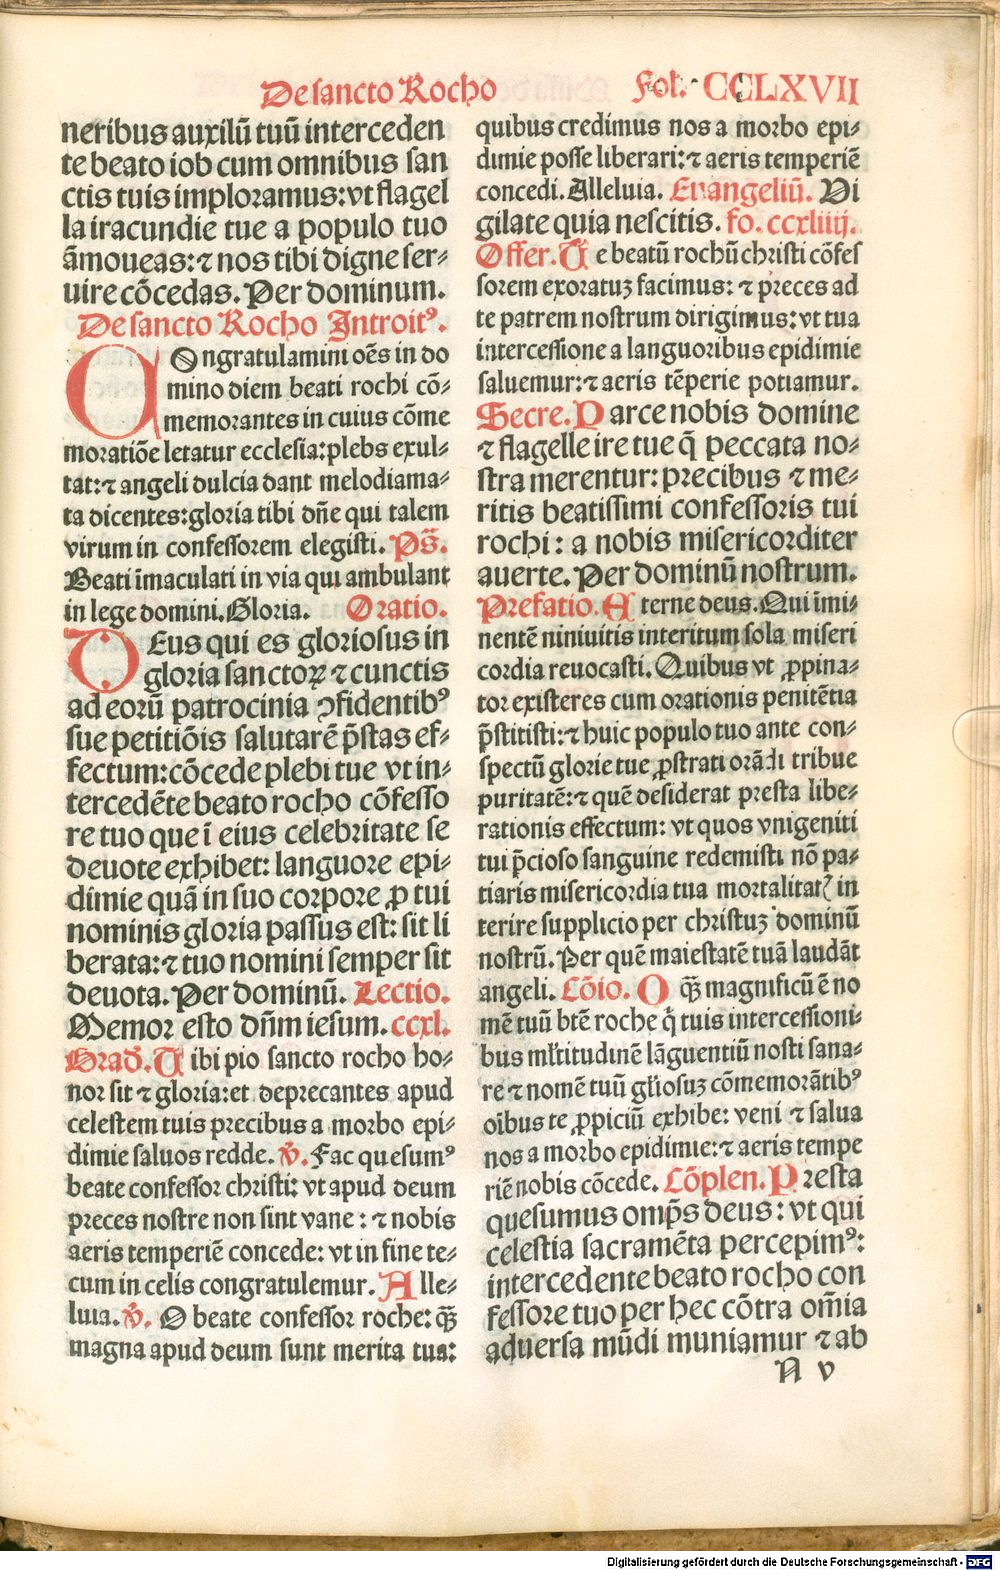 De sancto Rocho Fol. CCLXVII
neribus auxilū tuū interceden
te beato iob cum omnibus san
ctis tuis imploramus: vt flagel
la iracundie tue a populo tuo
āmoueas: ⁊ nos tibi digne ser⸗
uire cōcedas. Per dominum.
De sancto Rocho Introitꝰ.
COngratulamini oēs in do
mino diem beati rochi cō⸗
memorantes in cuius cōme
moratiōe letatur ecclesia: plebs exul⸗
tat: ⁊ angeli dulcia dant melodiama⸗
ta dicentes: gloria tibi dn̄e qui talem
virum in confessorem elegisti. Ps̄.
Beati īmaculati in via qui ambulant
in lege domini. Gloria. Oratio.
DEus qui es gloriosus in
gloria sanctoꝝ ⁊ cunctis
ad eorū patrocinia ꝯfidentibꝰ
sue petitiōis salutarē p̄stas ef⸗
fectum: cōcede plebi tue vt in⸗
tercedēte beato rocho cōfesso
re tuo que ī eius celebritate se
deuote exhibet: languore epi⸗
dimie quā in suo corpore ꝓ tui
nominis gloria passus est: sit li
berata: ⁊ tuo nomini semper sit
deuota. Per dominū. Lectio.
Memor esto dn̄m iesum. ccxl.
Grad̄. Tibi pio sancto rocho ho⸗
nor sit ⁊ gloria: et deprecantes apud
celestem tuis precibus a morbo epi⸗
dimie saluos redde. ℣. Fac quesumꝰ
beate confessor christi: vt apud deum
preces nostre non sint vane: ⁊ nobis
aeris temperiē concede: vt in fine te⸗
cum in celis congratulemur. Alle⸗
luia. ℣. O beate confessor roche: qꝫ̄
magna apud deum sunt merita tua:
quibus credimus nos a morbo epi⸗
dimie posse liberari: ⁊ aeris temperiē
concedi. Alleluia. Euangeliū. Vi
gilate quia nescitis. fo. ccxliiij.
Offer. Te beatū rochū christi cōfes
sorem exoratuꝫ facimus: ⁊ preces ad
te patrem nostrum dirigimus: vt tua
intercessione a languoribus epidimie
saluemur: ⁊ aeris tēperie potiamur.
Secre. Parce nobis domine
⁊ flagelle ire tue q̄ peccata no⸗
stra merentur: precibus ⁊ me⸗
ritis beatissimi confessoris tui
rochi: a nobis misericorditer
auerte. Per dominū nostrum.
Prefatio. Eterne deus. Qui īmi⸗
nentē niniuitis interitum sola miseri
cordia reuocasti. Quibus vt ꝓpina⸗
tor existeres cum orationis penitētia
p̄stitisti: ⁊ huic populo tuo ante con⸗
spectū glorie tue ꝓstrati orādi tribue
puritatē: ⁊ quē desiderat presta libe⸗
rationis effectum: vt quos vnigeniti
tui p̄cioso sanguine redemisti nō pa⸗
tiaris misericordia tua mortalitatꝭ in
terire supplicio per christuꝫ dominū
nostrū. Per quē maiestatē tuā laudāt
angeli. Cōio. O qꝫ̄ magnificū ē no
mē tuū btē roche q̄ tuis intercessioni⸗
bus ml̄titudinē lāguentiū nosti sana⸗
re ⁊ nomē tuū gl̄iosuꝫ cōmemorātibꝰ
oībus te ꝓpiciū exhibe: veni ⁊ salua
nos a morbo epidimie: ⁊ aeris tempe
riē nobis cōcede. Cōplen. Presta
quesumus omp̄s deus: vt qui
celestia sacramēta percepimꝰ:
intercedente beato rocho con
fessore tuo per hec cōtra om̄ia
aduersa mūdi muniamur ⁊ ab
A v
Digitalisierung gefördert durch die Deutsche Forschungsgemeinschaft - DFG